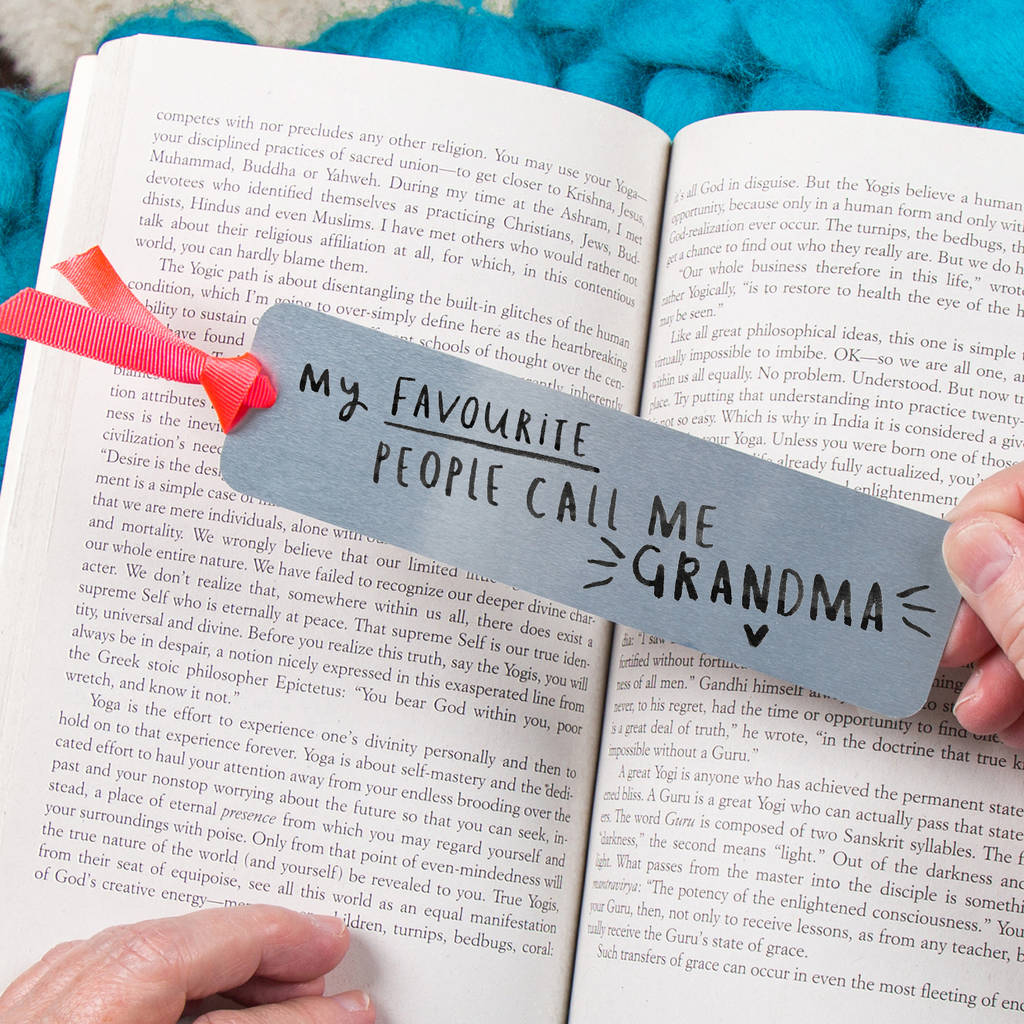 competes with nor precludes any other religion. You may use your Yoga—
your disciplined practices of sacred union—to get closer to Krishna, Jesus,
Muhammad, Buddha or Yahweh. During my time at the Ashram, I met
devotees who identified themselves as practicing Christians, Jews, Bud-
dhists, Hindus and even Muslims. I have met others who would rather not
talk about their religious affiliation at all, for which, in this contentious
world, you can hardly blame them.
The Yogic path is about disentangling the built-in glitches of the human
condition, which I'm going to over-simply define here as the heartbreaking
ability to sustain
have found schools of thought over the cen-
inherently
tion attributes
ness is the inevi
civilization's need
"Desire is the des
ment is a simple case of
that we are mere individuals, alone with
and mortality. We wrongly believe that our limited little
our whole entire nature. We have failed to recognize our deeper divine char-
acter. We don't realize that, somewhere within us all, there does exist a
supreme Self who is eternally at peace. That supreme Self is our true iden-
tity, universal and divine. Before you realize this truth, say the Yogis, you will
always be in despair, a notion nicely expressed in this exasperated line from
the Greek stoic philosopher Epictetus: "You bear God within you, poor
wretch, and know it not."
Yoga is the effort to experience one's divinity personally and then to
hold on to that experience forever. Yoga is about self-mastery and the dedi-
cated effort to haul your attention away from your endless brooding over the
past and your nonstop worrying about the future so that you can seek, in-
stead, a place of eternal presence from which you may regard yourself and
your surroundings with poise. Only from that point of even-mindedness will
the true nature of the world (and yourself) be revealed to you. True Yogis,
from their seat of equipoise, see all this world as an equal manifestation
of God's creative energy—men, children, turnips, bedbugs, coral:
My FAVOURITE
PEOPLE CALL ME
GRANDMA
it's all God in disguise. But the Yogis believe a human
opportunity, because only in a human form and only with
God-realization ever occur. The turnips, the bedbugs, th
get a chance to find out who they really are. But we do h
"Our whole business therefore in this life," wrote
rather Yogically, "is to restore to health the eye of the h
may be seen."
Like all great philosophical ideas, this one is simple
virtually impossible to imbibe. OK—so we are all one, an
within us all equally. No problem. Understood. But now tr
place. Try putting that understanding into practice twenty-
not so easy. Which is why in India it is considered a give
your Yoga. Unless you were born one of those
life already fully actualized, you'
enlightenment
dia: "I saw
fortified without
ness of all men." Gandhi himself
never, to his regret, had the time or opportunity to find one
is a great deal of truth," he wrote, "in the doctrine that true k
impossible without a Guru."
A great Yogi is anyone who has achieved the permanent state
ened bliss. A Guru is a great Yogi who can actually pass that state
ers. The word Guru is composed of two Sanskrit syllables. The f
"darkness," the second means "light." Out of the darkness and
light. What passes from the master into the disciple is somethi
mantravirya: "The potency of the enlightened consciousness." You
your Guru, then, not only to receive lessons, as from any teacher, b
tually receive the Guru's state of grace.
Such transfers of grace can occur in even the most fleeting of enc